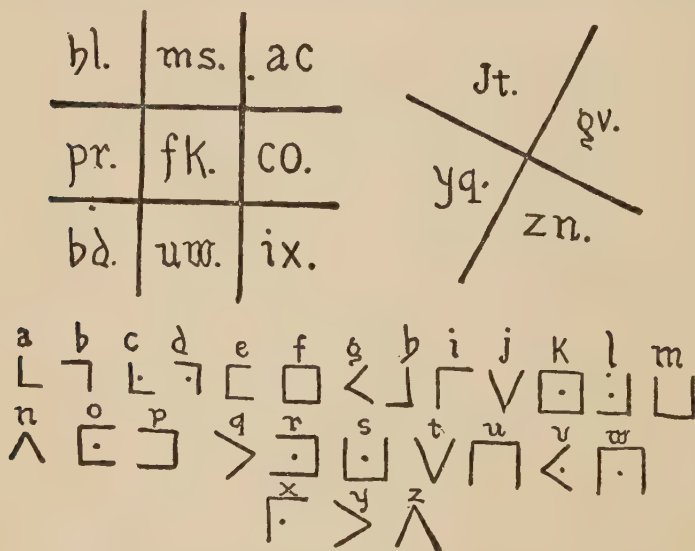 hl. ms. ac
pr. fk. co.
bd. uw. ix.
Jt.
gv.
yq.
zn.
a b c d e f g h i j k l m
n o p q r s t u v w
x y z